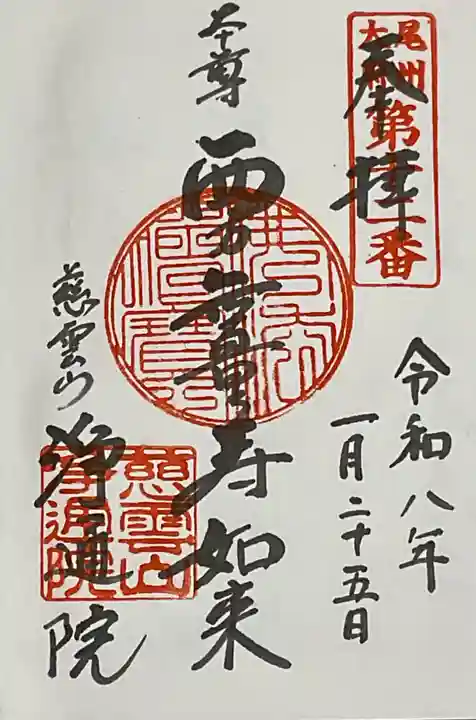 尾州
大
第十一番
奉拝
令和八年
一月二十五日
本尊
西方無量寿如来
慈雲山
浄通院
慈雲山
浄通院